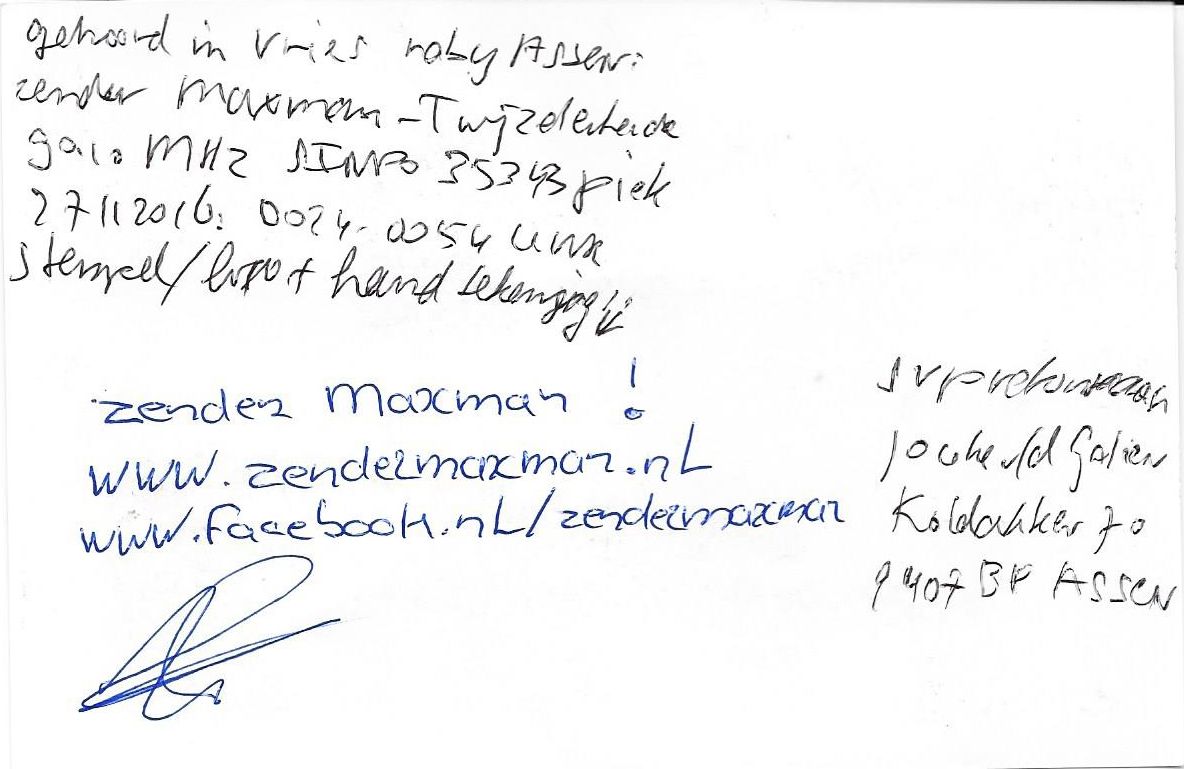 gehoord in Vries naby Assen:
zender Maxman - Twijzelerheide
MHz SINPO 35343 piek
27112016: 0024-0054 uur
stempel/ handtekening
zender Maxman !
www.zendermaxman.nl
www.facebook.nl/zendermaxman
svp retour aan
Koldakker 70
9407 BP Assen